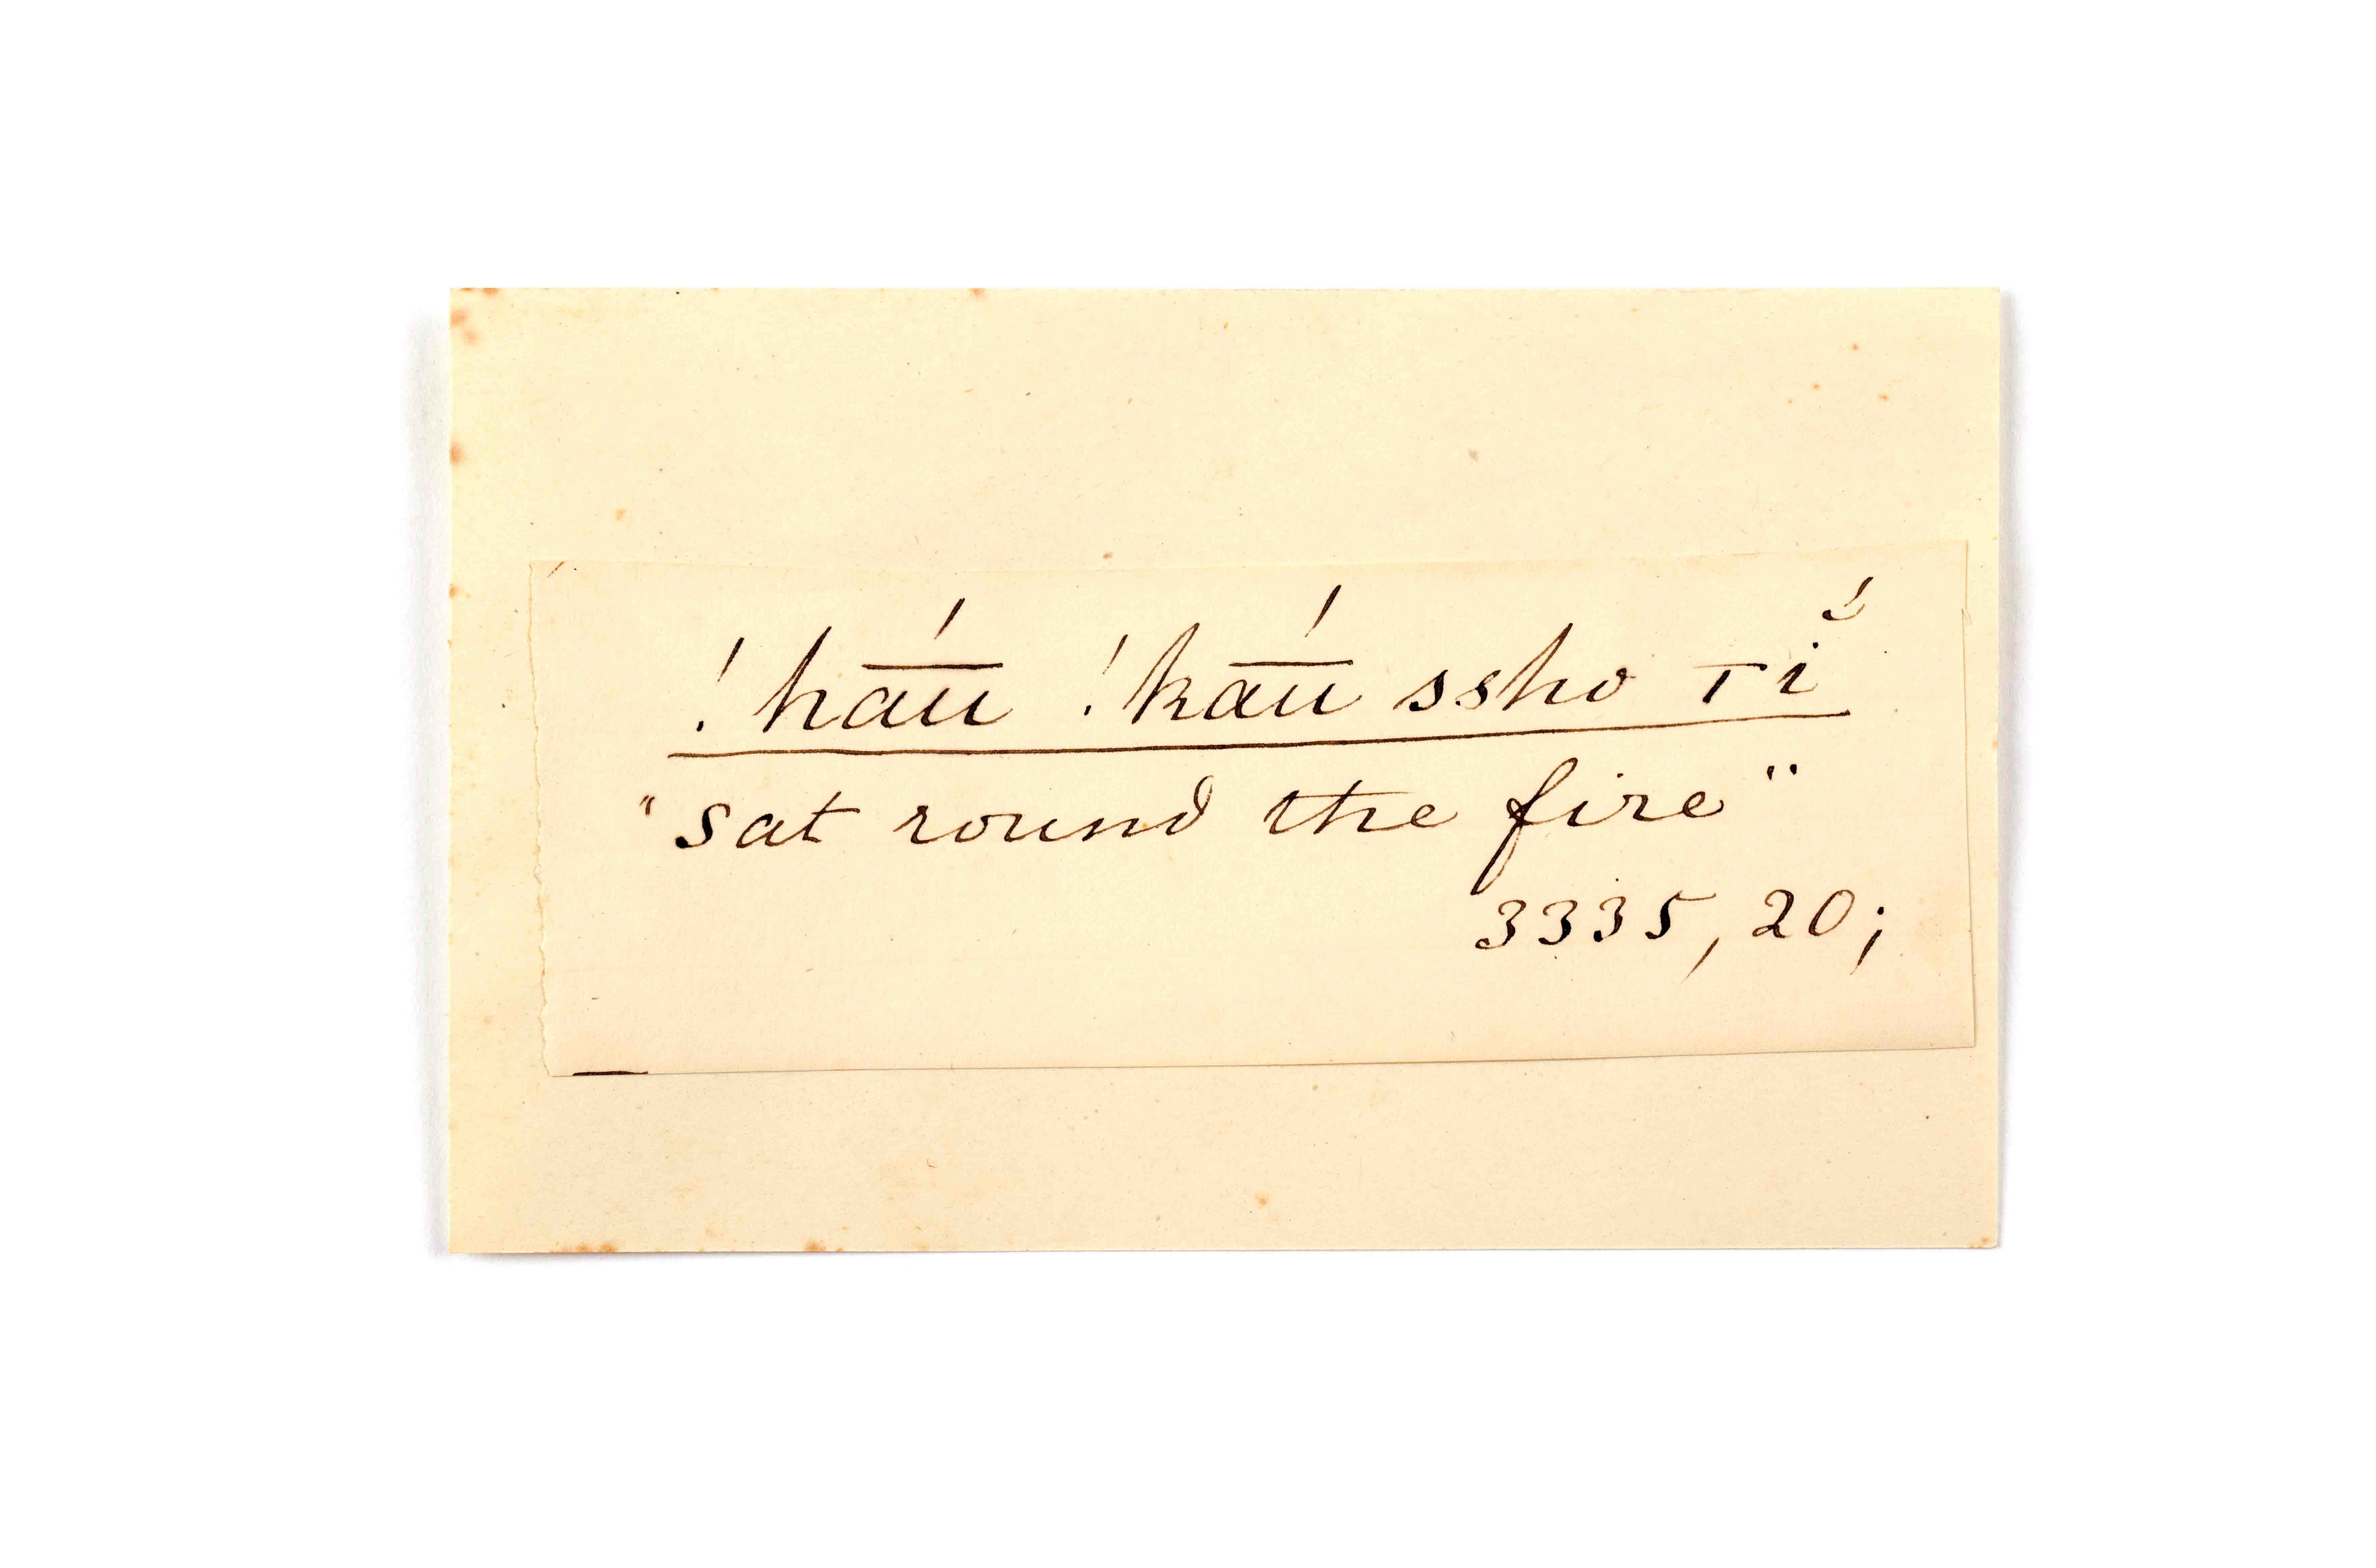 !hā́ū !kā́ū ssho Tĭ́
"sat round the fire"
3335, 20;